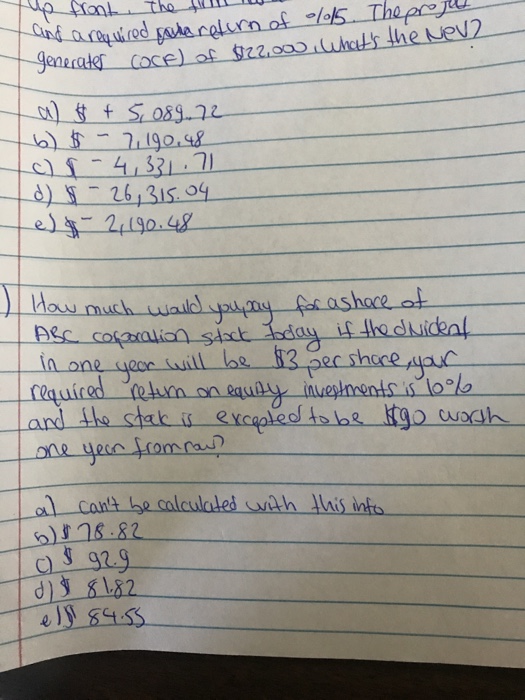 up front. The firm
and a required return of %15. The project
generates (OCF) of $22,000. What's the NPV?
a) $ + 5,089.72
b) $ - 7,190.48
c) $ - 4,331.71
d) $ - 26,315.04
e) $ - 2,190.48
) How much would you pay for a share of
ABC coporation stock today if the divident
in one year will be $3 per share, your
required return on equity investments is 10%
and the stock is excepted to be $90 worth
one year from now?
a) can't be calculated with this info
b) $ 78.82
c) $ 92.9
d) $ 81.82
e) $ 84.55